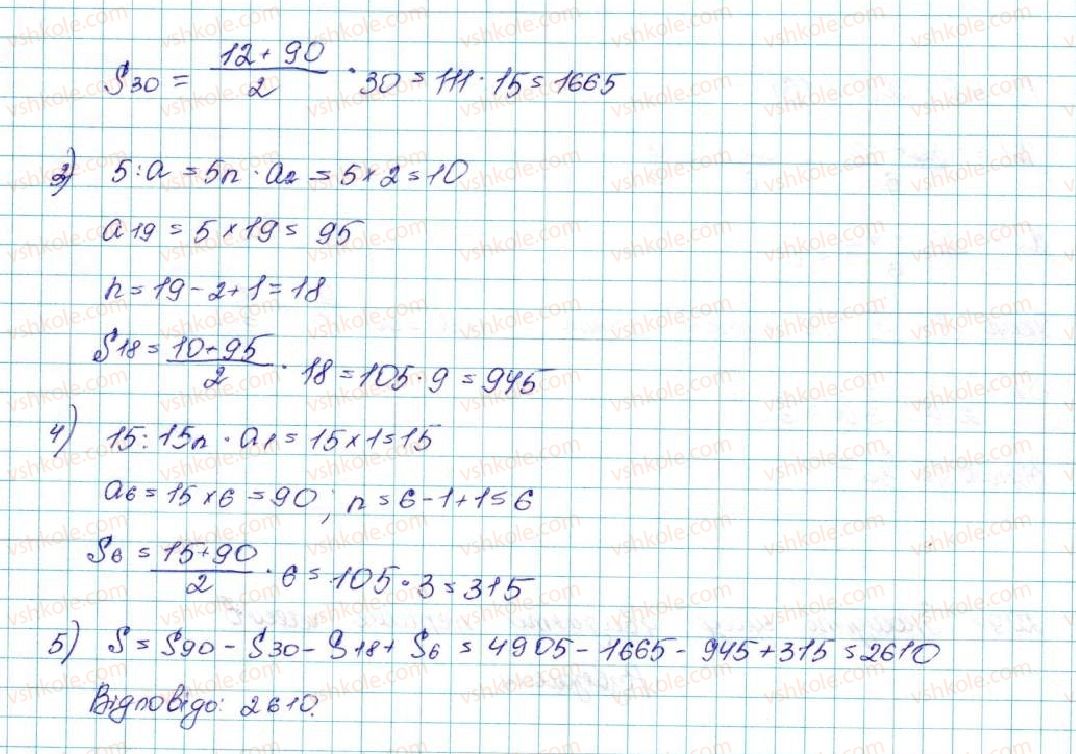 S30 = (12 + 90)/2 · 30 = 111 · 15 = 1665
3) 5 : a = 5n · a2 = 5 × 2 = 10
a19 = 5 × 19 = 95
n = 19 - 2 + 1 = 18
S18 = (10 + 95)/2 · 18 = 105 · 9 = 945
4) 15 : 15n · a1 = 15 × 1 = 15
a6 = 15 × 6 = 90; n = 6 - 1 + 1 = 6
S6 = (15 + 90)/2 · 6 = 105 · 3 = 315
5) S = S90 - S30 - S18 + S6 = 4905 - 1665 - 945 + 315 = 2610
Відповідь: 2610.
vshkole.com